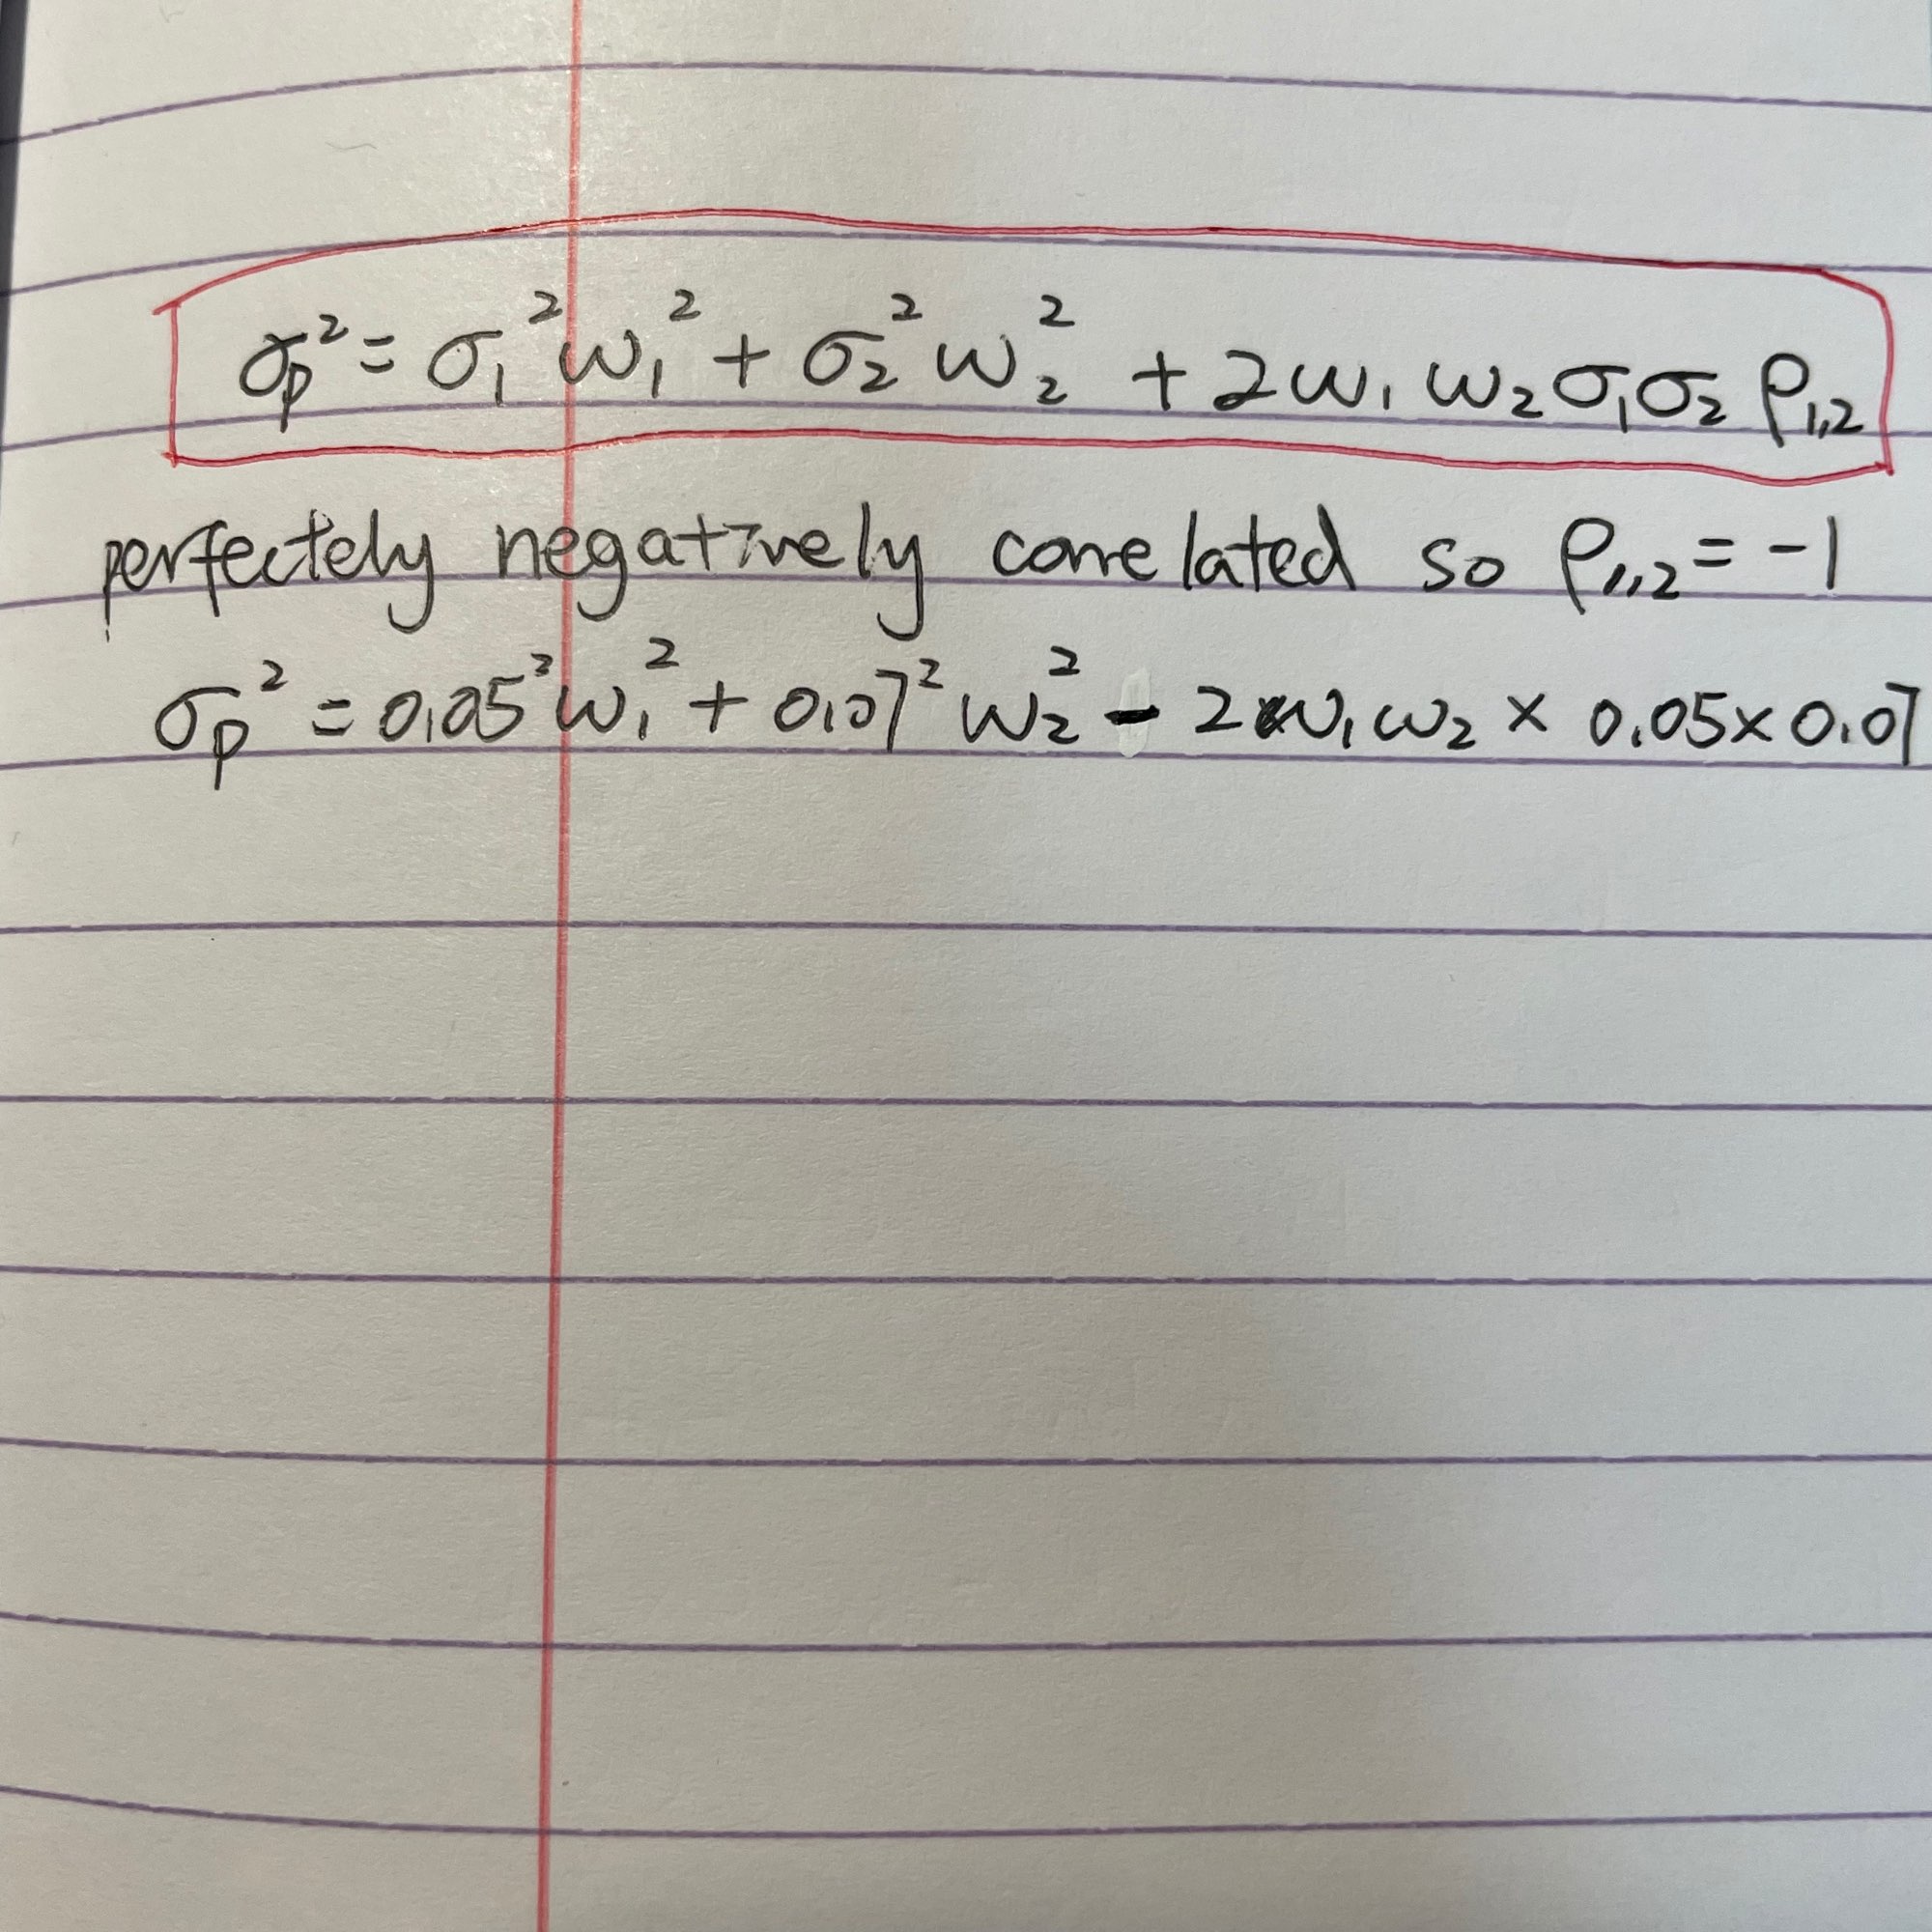 σp² = σ₁²ω₁² + σ₂²ω₂² + 2ω₁ω₂σ₁σ₂ρ₁,₂
perfectely negatively correlated so ρ₁,₂ = -1
σp² = 0.05²ω₁² + 0.07²ω₂² - 2ω₁ω₂ × 0.05 × 0.07